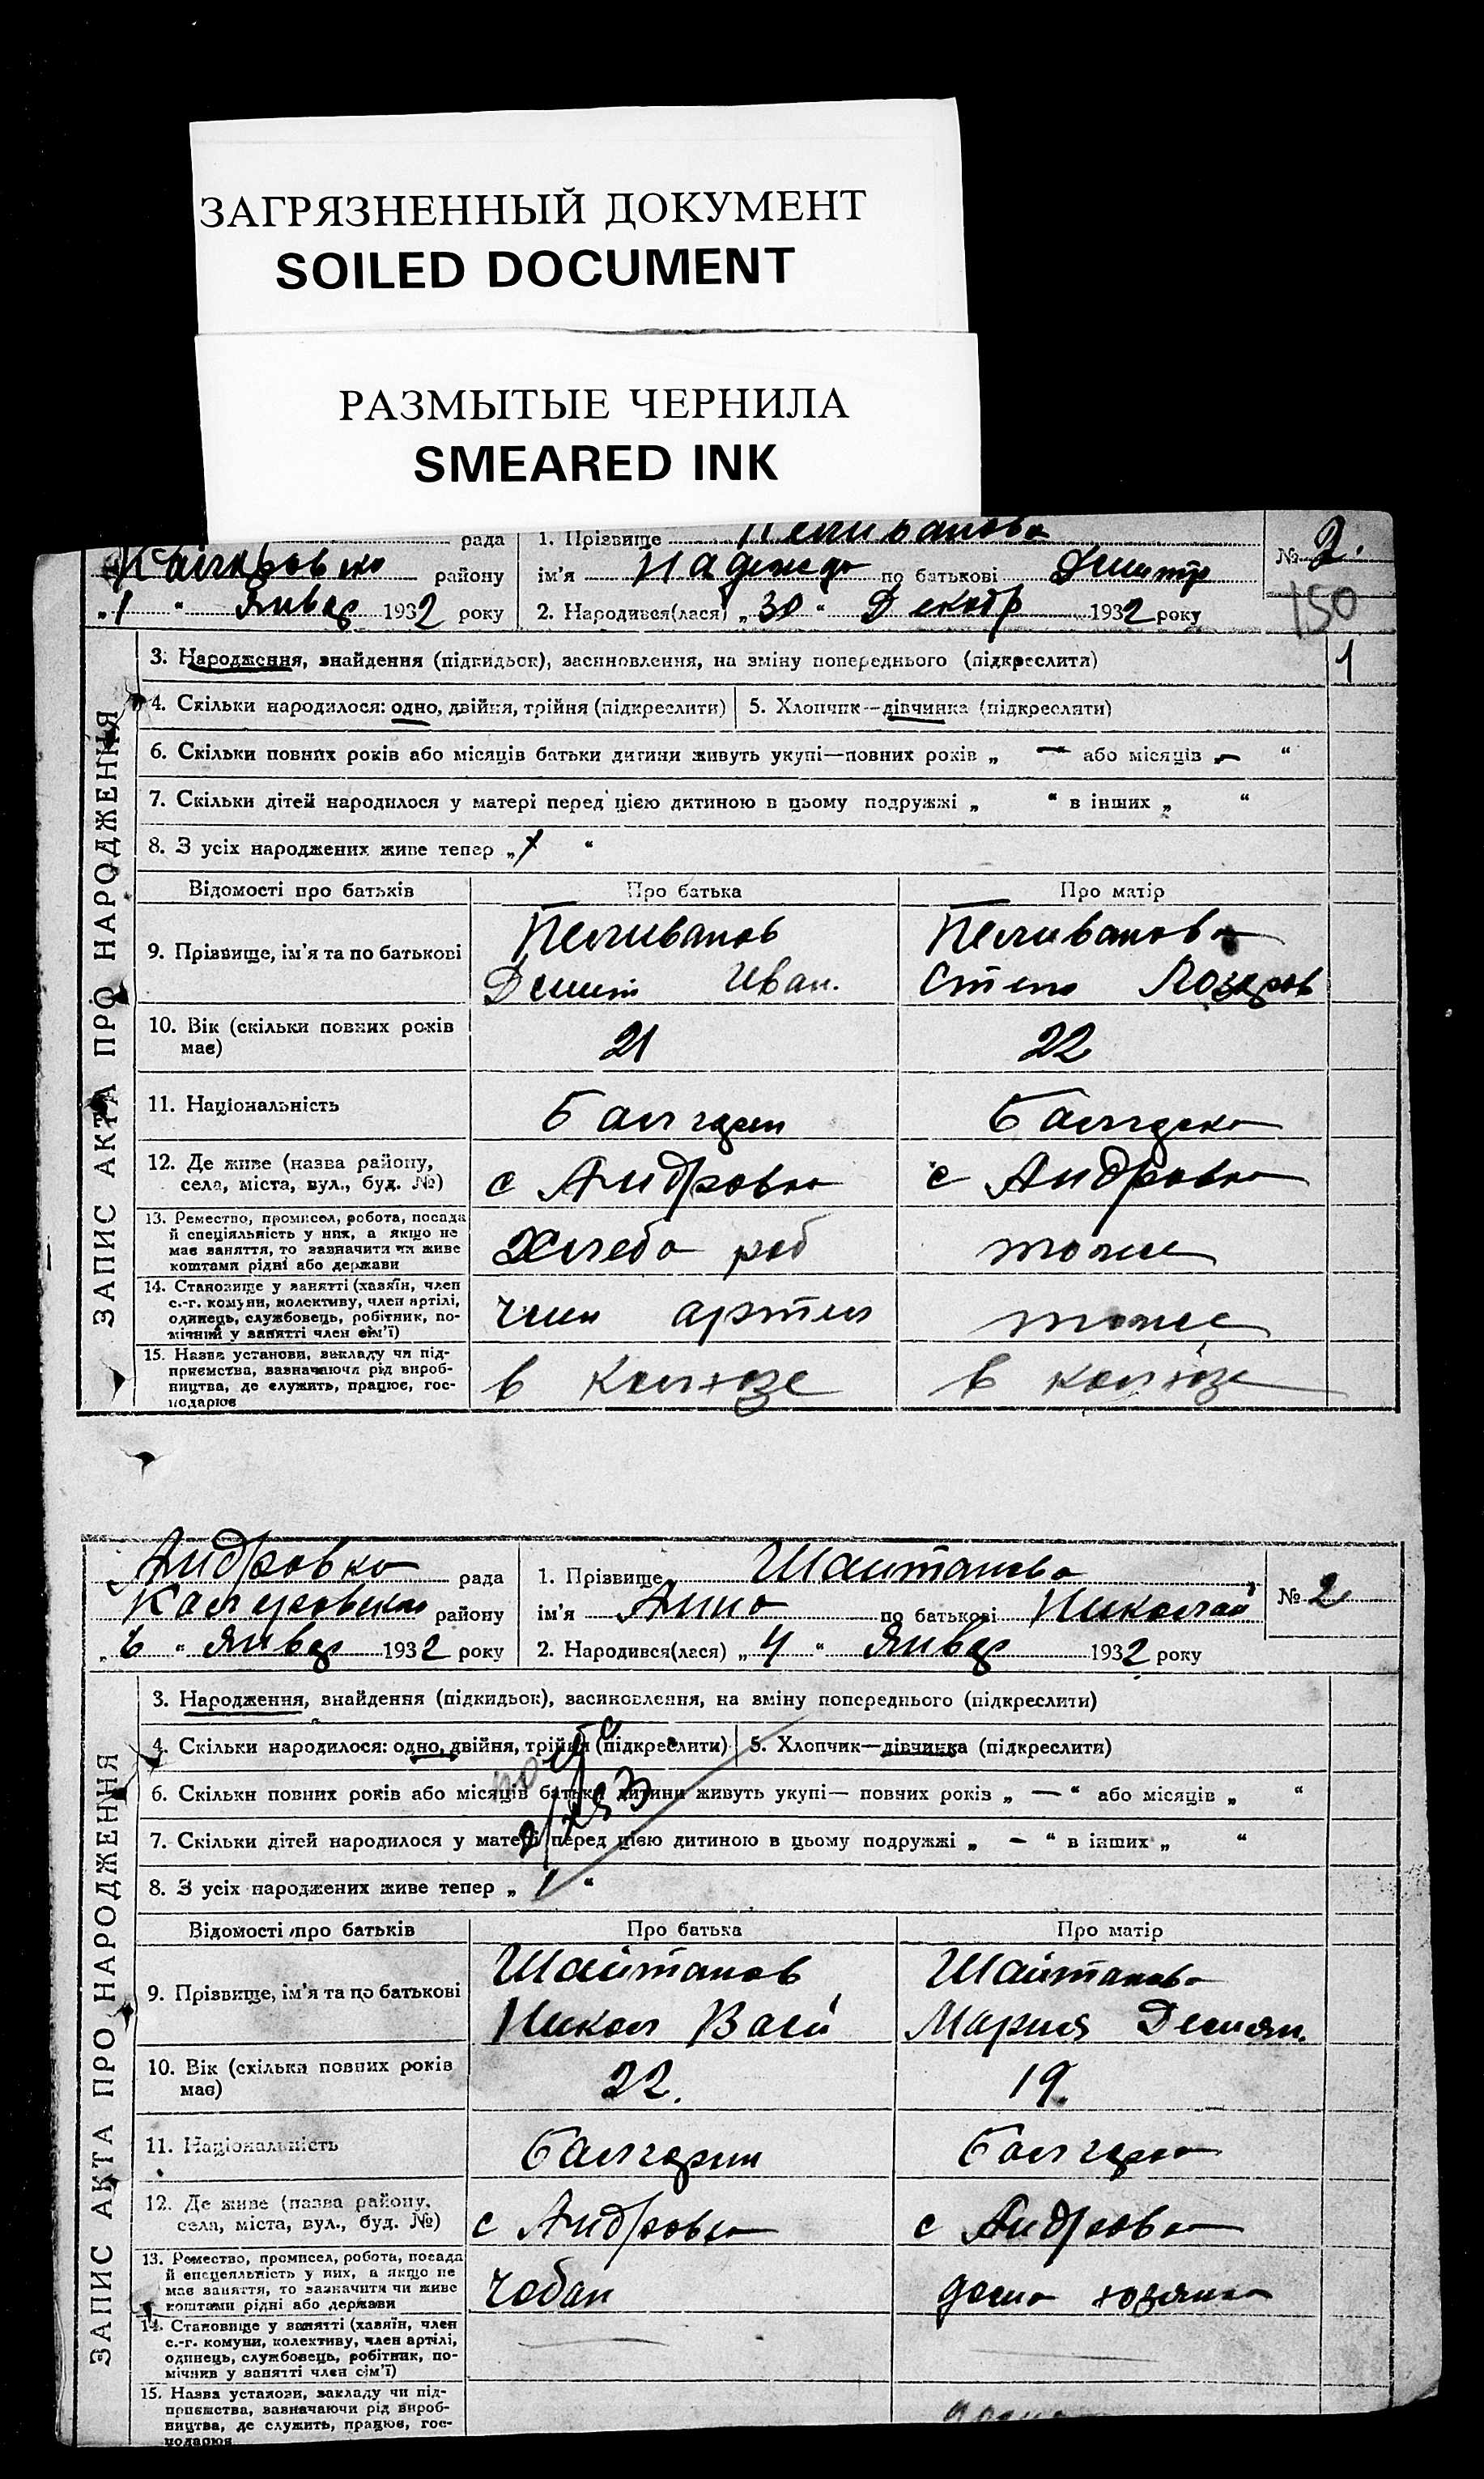 ЗАГРЯЗНЕННЫЙ ДОКУМЕНТ
SOILED DOCUMENT
РАЗМЫТЫЕ ЧЕРНИЛА
SMEARED INK
рада
району
„1 “ январ 1932 року
1. Прізвище Пеливанова
ім'я Надежда по батькові Дмитр
2. Народився(лася) „30 “ Декабр 1932 року
№ 2.
150
ЗАПИС АКТА ПРО НАРОДЖЕННЯ
3. Народження, знайдення (підкидьок), засиновлення, на зміну попереднього (підкреслити)
1
4. Скільки народилося: одно, двійня, трійня (підкреслити)
5. Хлопчик—дівчинка (підкреслити)
6. Скільки повних років або місяців батьки дитини живуть укупі—повних років „ — або місяців „— “
7. Скільки дітей народилося у матері перед цією дитиною в цьому подружжі „ “ в інших „ “
8. З усіх народжених живе тепер „ “
Відомості про батьків
Про батька
Про матір
9. Прізвище, ім'я та по батькові
Пеливанов
Иван.
Пеливанова
10. Вік (скільки повних років
має)
21
22
11. Національність
Балгарин
12. Де живе (назва району,
села, міста, вул., буд. №)
с Андровка
с Андровка
13. Ремество, промисел, робота, посада
й спеціяльність у них, а якщо не
має заняття, то зазначити чи живе
коштами рідні або держави
Хлеба роб
тоже
14. Становище у занятті (хазяїн, член
с.-г. комуни, колективу, член артілі,
одинець, службовець, робітник, по-
мічний у занятті член сім'ї)
член артел
тоже
15. Назва установи, закладу чи під-
приємства, зазначаючи рід вироб-
ництва, де служить, працює, гос-
подарює
в колхозе
в колхозе
Андровка рада
району
„6 “ январ 1932 року
1. Прізвище Шайтанова
ім'я Анна по батькові Николай
2. Народився(лася) „4 “ январ 1932 року
№ 2
ЗАПИС АКТА ПРО НАРОДЖЕННЯ
3. Народження, знайдення (підкидьок), засиновлення, на зміну попереднього (підкреслити)
4. Скільки народилося: одно, двійня, трійня (підкреслити)
5. Хлопчик—дівчинка (підкреслити)
6. Скільки повних років або місяців батьки дитини живуть укупі— повних років „ — “ або місяців „ “
7. Скільки дітей народилося у матері перед цією дитиною в цьому подружжі „ — “ в інших „ “
8. З усіх народжених живе тепер „ 1 “
Відомості про батьків
Про батька
Про матір
9. Прізвище, ім'я та по батькові
Шайтанов
Никол Васи
Шайтанова
Мария Демян.
10. Вік (скільки повних років
має)
22.
19.
11. Національність
Балгарин
Балгарка
12. Де живе (назва району,
села, міста, вул., буд. №)
с Андровка
с Андровка
13. Ремество, промисел, робота, посада
й спецеяльність у них, а якщо не
має заняття, то зазначити чи живе
коштами рідні або держави
Чобан
дома хозяика
14. Становище у занятті (хазяїн, член
с.-г. комуни, колективу, член артілі,
одинець, службовець, робітник, по-
мічник у занятті член сім'ї)
15. Назва установи, закладу чи під-
приємства, зазначаючи рід вироб-
ництва, де служить, працює, гос-
подарює